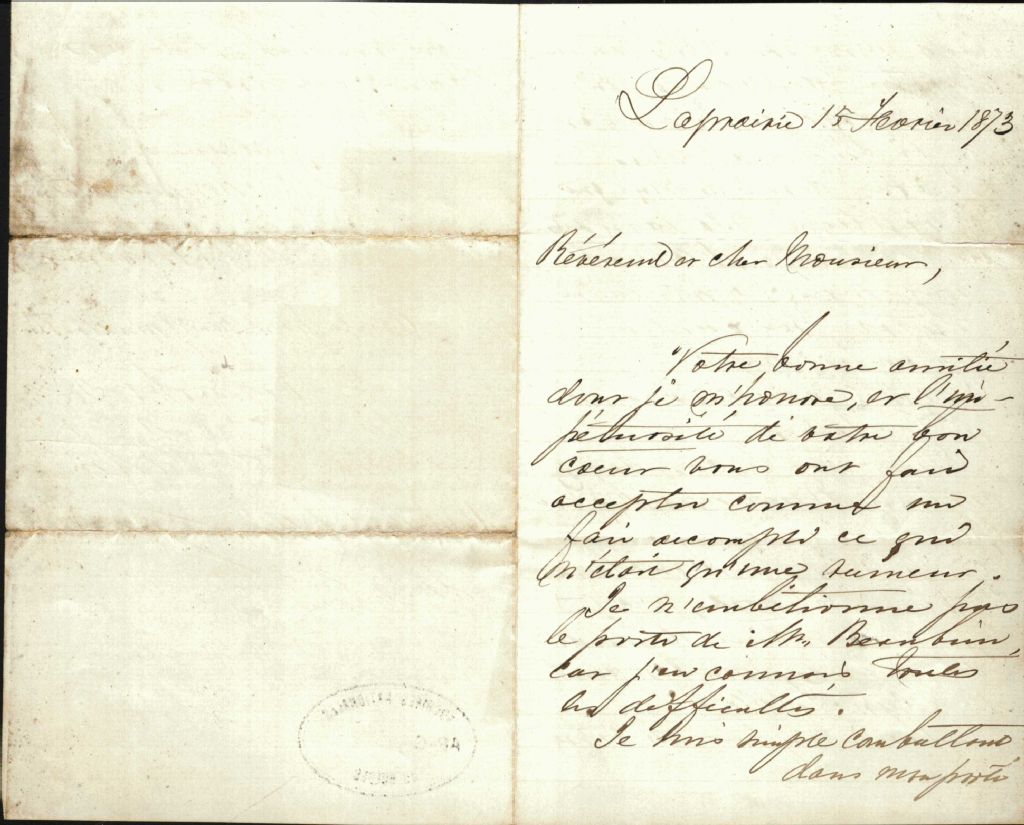 Laprairie 15 Fevrier 1873
Révérend et cher Monsieur,
Votre bonne amitié
dont je m'honore, et l'im-
pétuosité de votre bon
coeur vous ont fait
accepter comme un
fait accompli ce qui
n'était qu'une rumeur.
Je n'ambitionne pas
le poste de Mr. Beaubien,
car j'en connais toutes
les difficultés.
Je suis simple combattant
dans mon parti
ARCHIVES NATIONALES